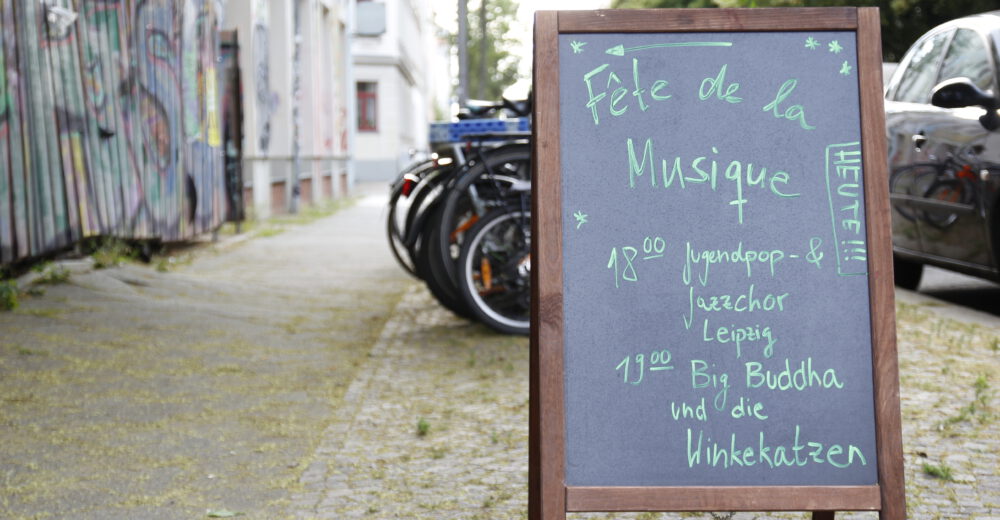 Fête de la
Musique
HEUTE!!!
18⁰⁰ Jugendpop- &
Jazzchor
Leipzig
19⁰⁰ Big Buddha
und die
Winkekatzen